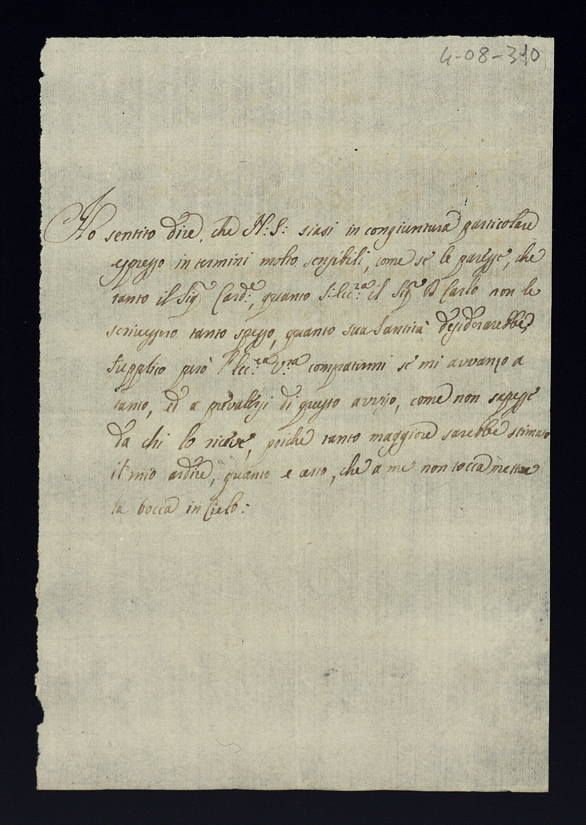 4-08-310
Ho sentito dire, che N: S: siasi in congiuntura particolare
espresso in termini molto sensibili, come se le paresse, che
tanto il Sigr Card:, quanto S: Ecc:za il Sigr D Carlo non le
scrivessero tanto spesso, quanto sua Santità desiderarebbe,
supplico però l'Ecc:za V:ra compatirmi se mi avvanzo a
tanto, et a prevalersi di questo avviso, come non sapesse
da chi lo riceve, poiche tanto maggiore sarebbe stimato
il mio ardire, quanto è certo, che a me non tocca mettere
la bocca in Cielo: